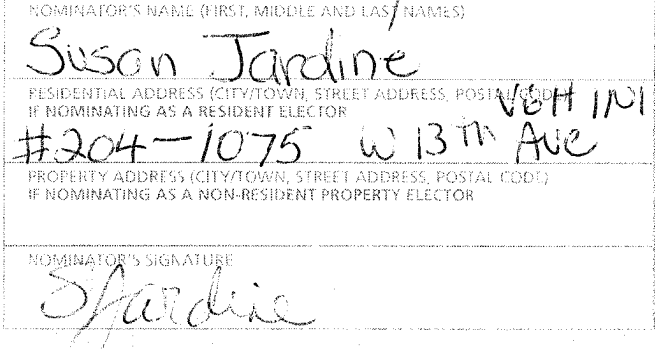 NOMINATOR'S NAME (FIRST, MIDDLE AND LAST NAMES)
Susan Jardine
RESIDENTIAL ADDRESS (CITY/TOWN, STREET ADDRESS, POSTAL CODE)
IF NOMINATING AS A RESIDENT ELECTOR
V6H 1N1
#204-1075 W 13th Ave
PROPERTY ADDRESS (CITY/TOWN, STREET ADDRESS, POSTAL CODE)
IF NOMINATING AS A NON-RESIDENT PROPERTY ELECTOR
NOMINATOR'S SIGNATURE
SJardine